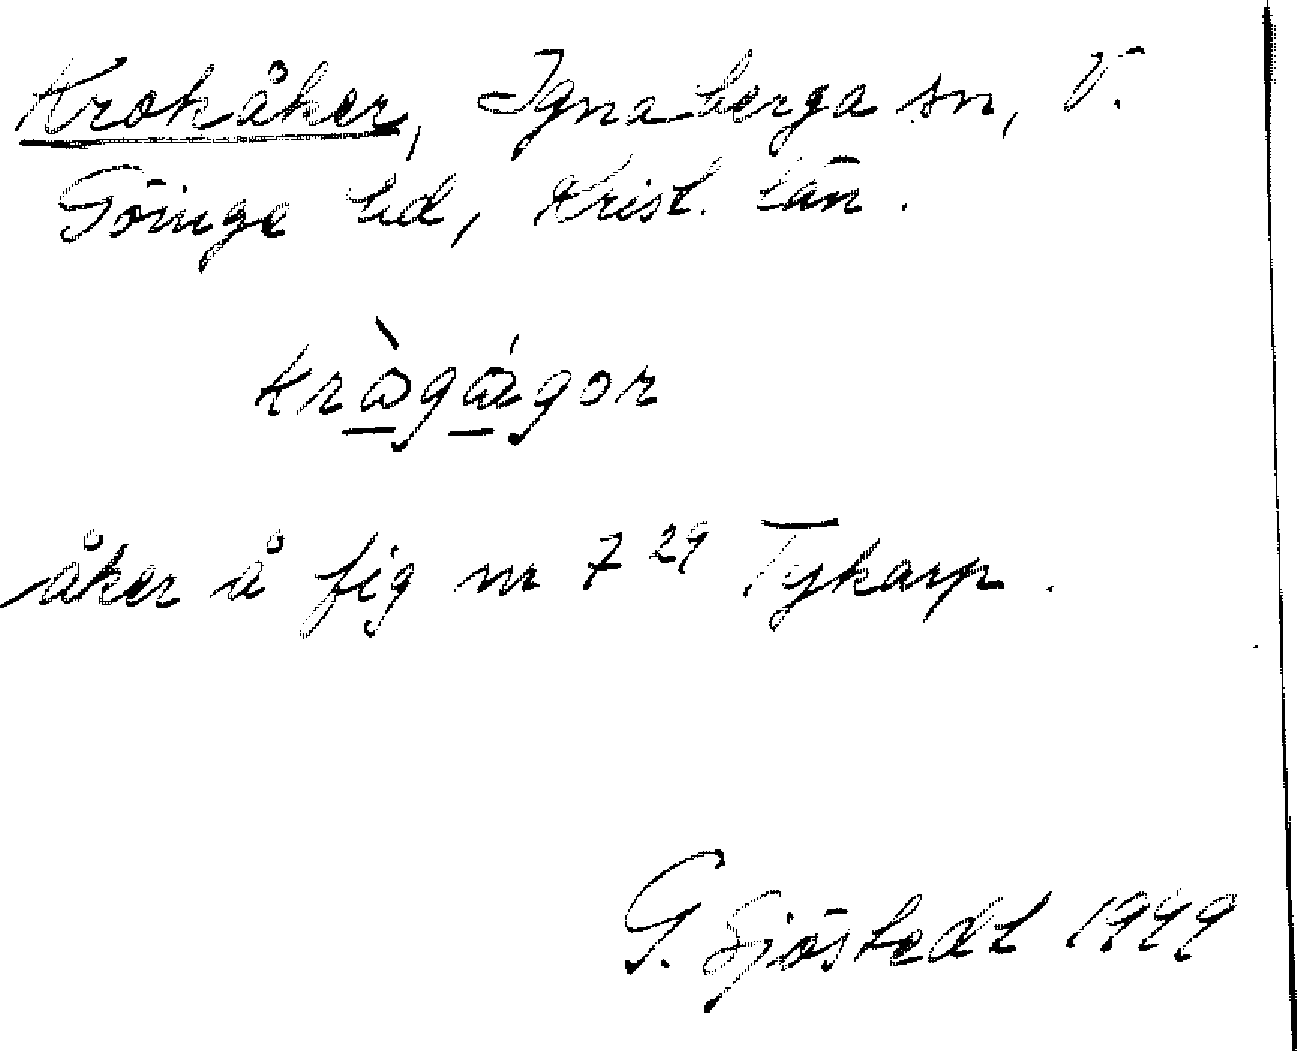 Krokåker, Ignaberga sn, V.
Göinge hd, Krist. län.
kràgágor
åker å fig nr 7 29 Tykarp.
G. Sjöstedt 1949